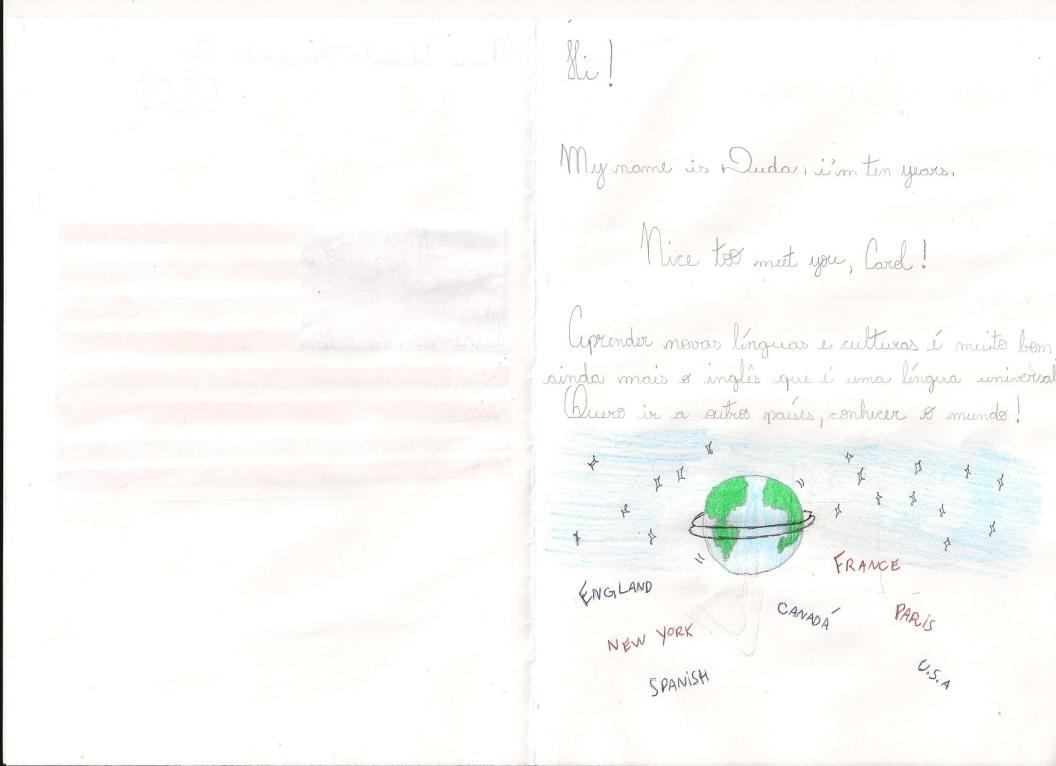 Hi!
My name is Duda, i'm ten years.
Nice too meet you, Carol!
Aprender novas línguas e culturas é muito bom
ainda mais o inglês que é uma língua universal
Quero ir a outros países, conhecer o mundo!
FRANCE
ENGLAND
CANADÁ
PARIS
NEW YORK
SPANISH
U.S.A